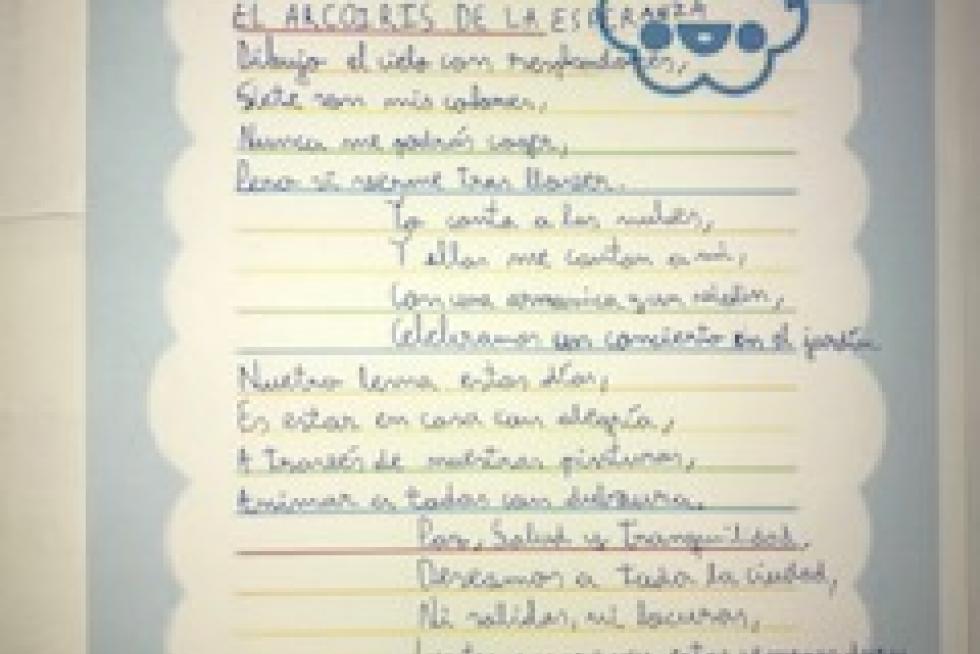 EL ARCOIRIS DE LA ESPERANZA
Dibujo el cielo con resplandores,
Siete son mis colores,
Nunca me podrás coger,
Pero si verme tras llover.
Yo canto a las nubes,
Y ellas me cantan a mi,
Con una armonica y un violin,
Celebramos un concierto en el jardín
Nuetro lema estos días,
Es estar en casa con alegría,
A través de nuestras pinturas,
Animar a todos con dulzura.
Paz, Salud y Tranquilidad.
Deseamos a toda la ciudad,
Ni salidas, ni locuras,